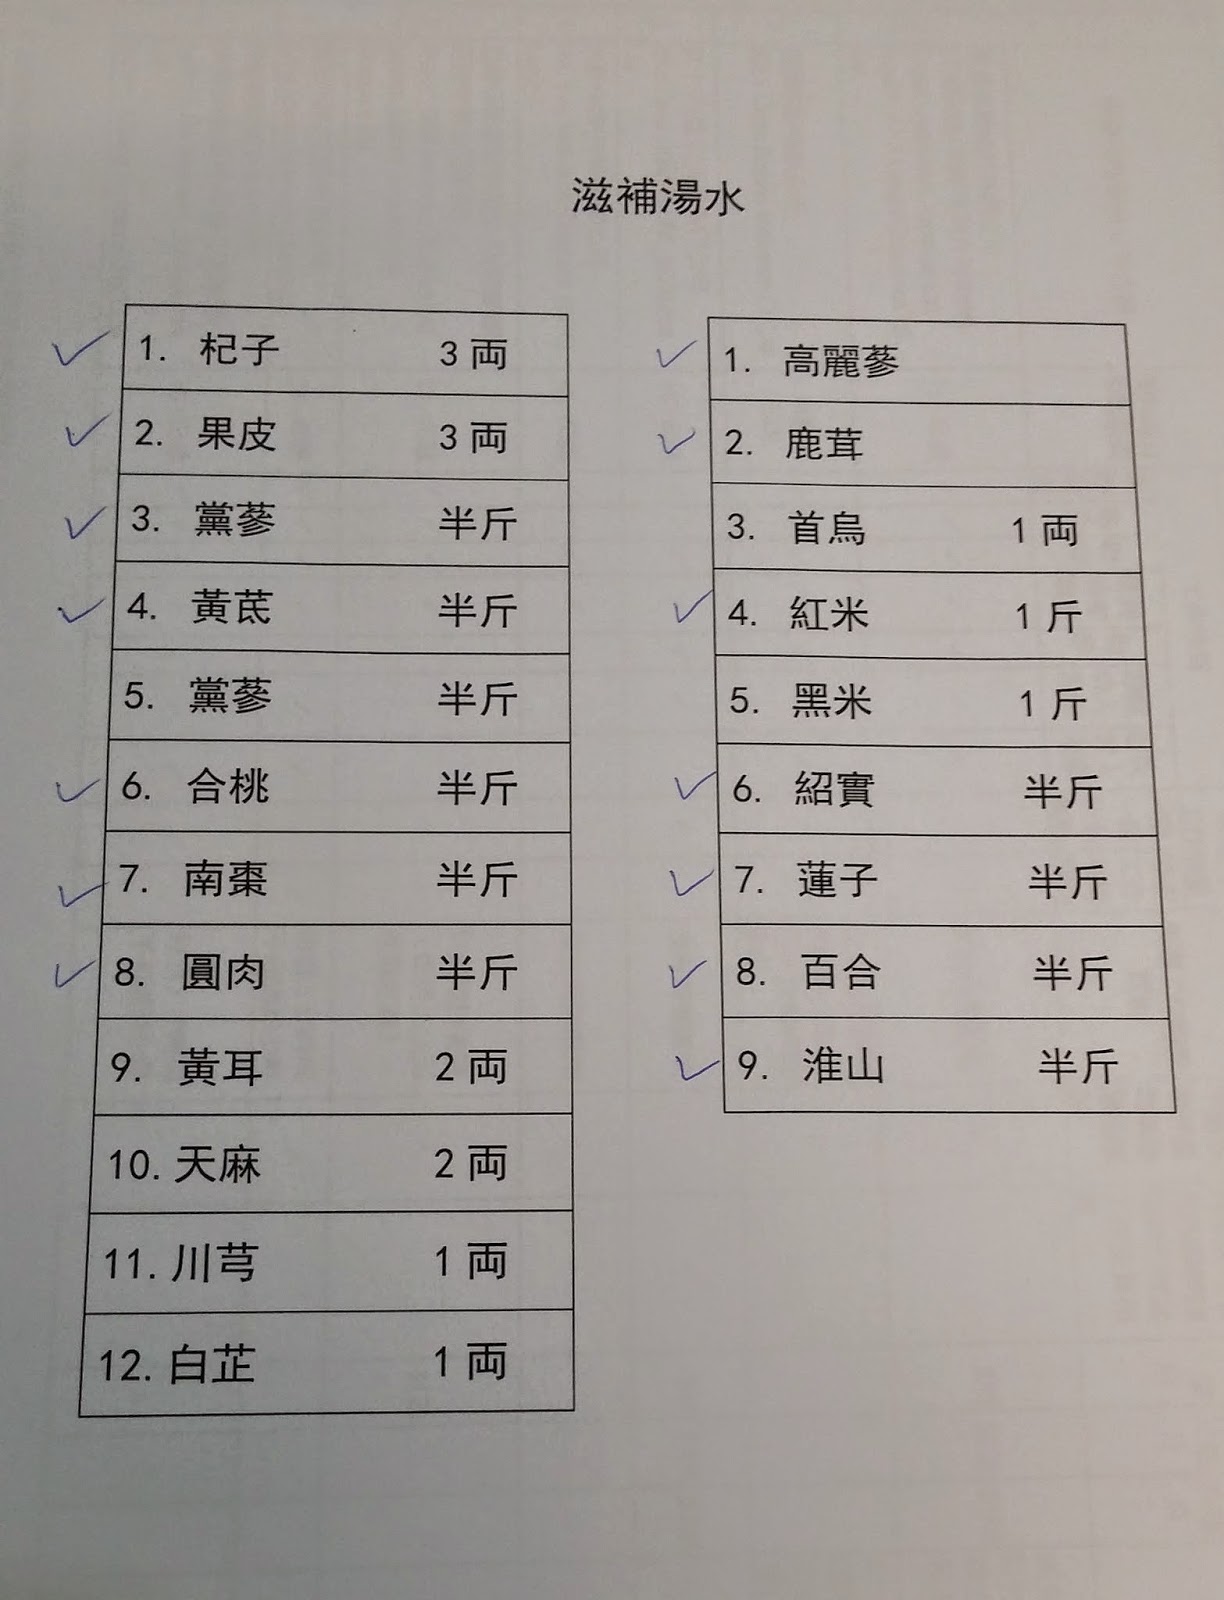 滋補湯水
1. 杞子 3両
2. 果皮 3両
3. 黨蔘 半斤
4. 黃茋 半斤
5. 黨蔘 半斤
6. 合桃 半斤
7. 南棗 半斤
8. 圓肉 半斤
9. 黃耳 2両
10. 天麻 2両
11. 川芎 1両
12. 白芷 1両
1. 高麗蔘
2. 鹿茸
3. 首烏 1両
4. 紅米 1斤
5. 黑米 1斤
6. 紹實 半斤
7. 蓮子 半斤
8. 百合 半斤
9. 淮山 半斤